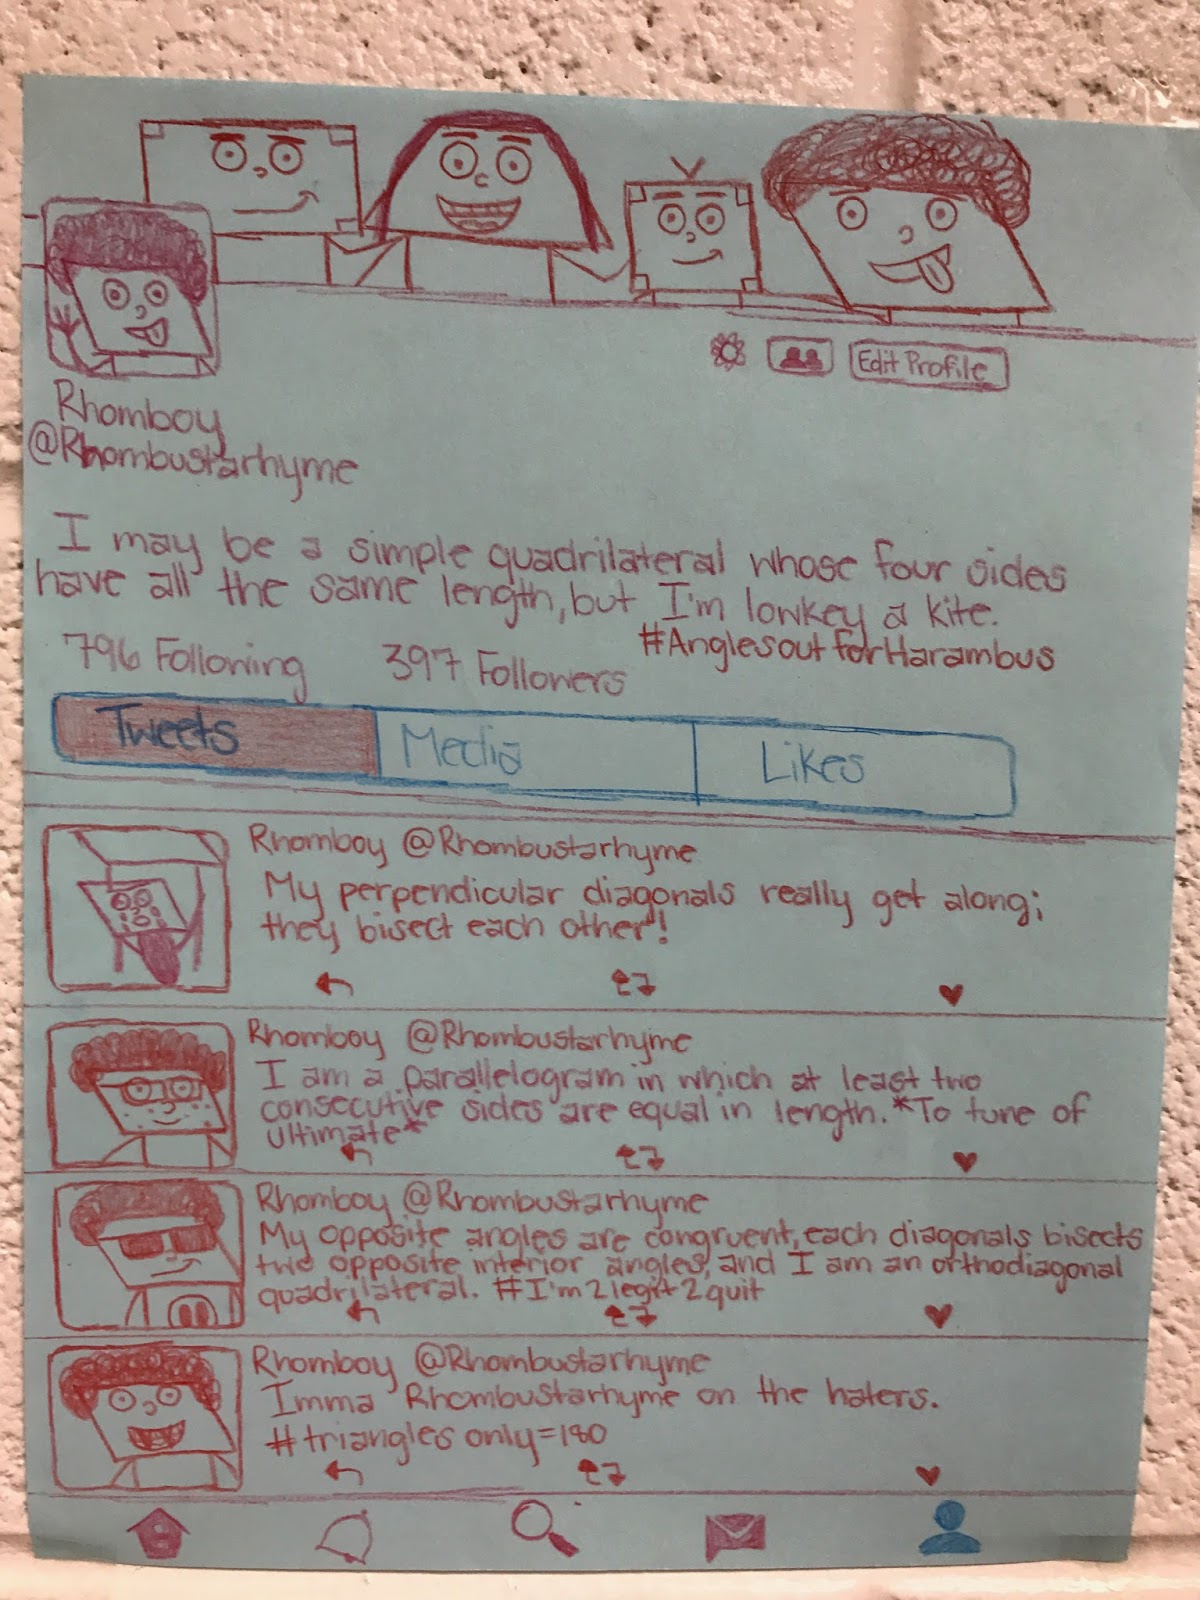 Edit Profile
Rhomboy
@Rhombustarhyme
I may be a simple quadrilateral whose four sides
have all the same length, but I'm lowkey a kite.
#AnglesoutforHarambus
796 Following 397 Followers
Tweets Media Likes
Rhomboy @Rhombustarhyme
My perpendicular diagonals really get along;
they bisect each other!
Rhomboy @Rhombustarhyme
I am a parallelogram in which at least two
consecutive sides are equal in length. *To tune of
ultimate*
Rhomboy @Rhombustarhyme
My opposite angles are congruent, each diagonals bisects
two opposite interior angles, and I am an orthodiagonal
quadrilateral. #I'm2legit2quit
Rhomboy @Rhombustarhyme
Imma Rhombustarhyme on the haters.
#triangles only=180